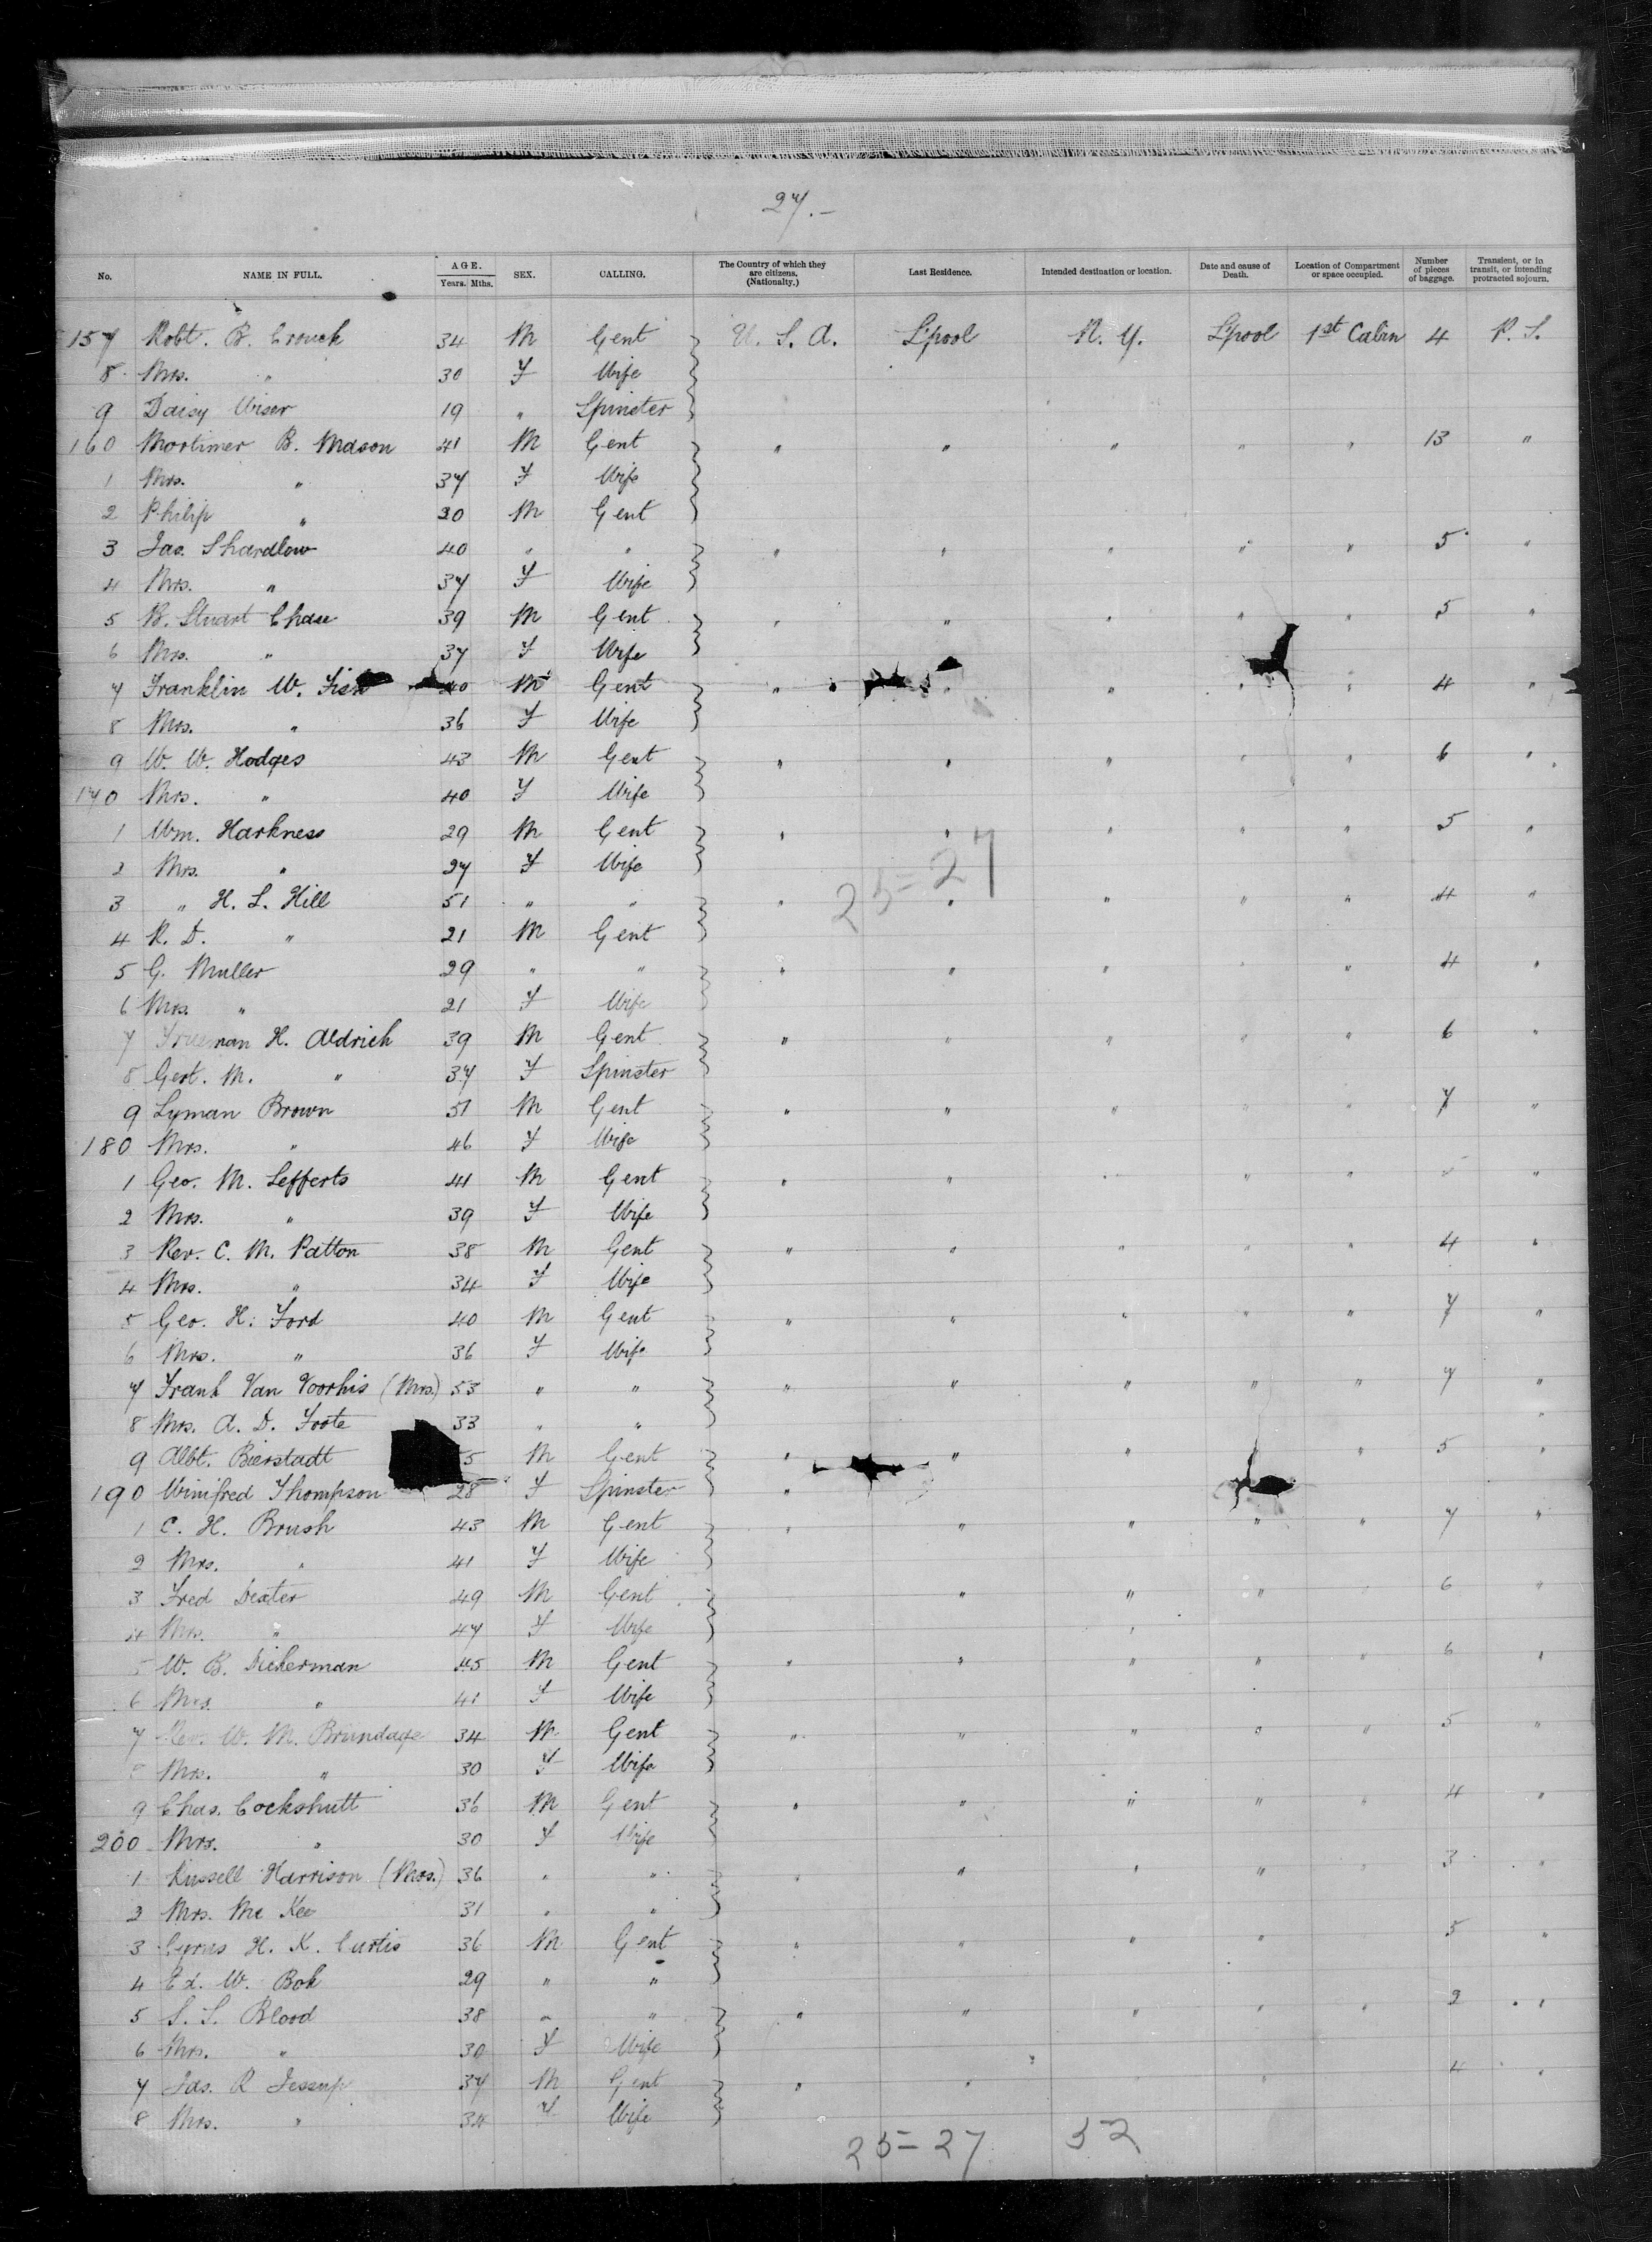 27.-
No. NAME IN FULL. AGE. Years. Mths. SEX. CALLING. The Country of which they are citizens. (Nationalty.) Last Residence. Intended destination or location. Date and cause of Death. Location of Compartment or space occupied. Number of pieces of baggage. Transient, or in transit, or intending protracted sojourn.
157 Robt. B. Crouch 34 M Gent U. S. A. L'pool N. Y. L'pool 1st Cabin 4 P. S.
8 Mrs. " 30 F Wife
9 Daisy Wiser 19 " Spinster
160 Mortimer B. Mason 41 M Gent " " " " " 13 "
1 Mrs. " 37 F Wife
2 Philip " 20 M Gent
3 Jas. Shardlow 40 " " " " " " " 5 "
4 Mrs. " 37 F Wife
5 B. Stuart Chase 39 M Gent " " " " " 5 "
6 Mrs. " 37 F Wife
7 Franklin W. 40 M Gent " " " " " 4 "
8 Mrs. " 36 F Wife
9 W. W. Hodges 43 M Gent " " " " " 6 "
170 Mrs. " 40 F Wife
1 Wm. Harkness 29 M Gent " " " " " 5 "
2 Mrs. " 27 F Wife
25-27
3 " H. L. Hill 51 " " " " " " " 4 "
4 R. D. " 21 M Gent
5 G. Muller 29 " " " " " " " 4 "
6 Mrs. " 21 F Wife
7 Freeman H. Aldrich 39 M Gent " " " " " 6 "
8 Gert. M. " 37 F Spinster
9 Lyman Brown 51 M Gent " " " " " 7 "
180 Mrs. " 46 F Wife
1 Geo. M. Lefferts 41 M Gent " " " " " "
2 Mrs. " 39 F Wife
3 Rev. C. M. Patton 38 M Gent " " " " " 4 "
4 Mrs. " 34 F Wife
5 Geo. H. Ford 40 M Gent " " " " " 7 "
6 Mrs. " 36 F Wife
7 Frank Van Voorhis (Mrs.) 53 " " " " " " " 7 "
8 Mrs. A. D. Foote 33 " " "
9 Albt. Bierstadt 5 M Gent " " " " " 5 "
190 Winifred Thompson 28 F Spinster "
1 C. H. Brush 43 M Gent " " " " " 7 "
2 Mrs. " 41 F Wife
3 Fred Dexter 49 M Gent " " " " 6 "
4 Mrs. " 47 F Wife "
5 W. B. Dickerman 45 M Gent " " " " " 6 "
6 Mrs " 41 F Wife
7 Rev. W. M. Brundage 34 M Gent " " " " " 5 "
8 Mrs. " 30 F Wife
9 Chas. Cockshutt 36 M Gent " " " " " 4 "
200 Mrs. " 30 F Wife
1 Russell Harrison (Mrs.) 36 " " " " " " 3 "
2 Mrs. Mc Kee 31 " "
3 Cyrus H. K. Curtis 36 M Gent " " " " 5 "
4 Ed. W. Bok 29 " "
5 S. S. Blood 38 " " " " " " " 2 "
6 Mrs. " 30 F Wife
7 Jas. R Jessup 37 M Gent " " " 4 "
8 Mrs. " 34 F Wife
25-27 52